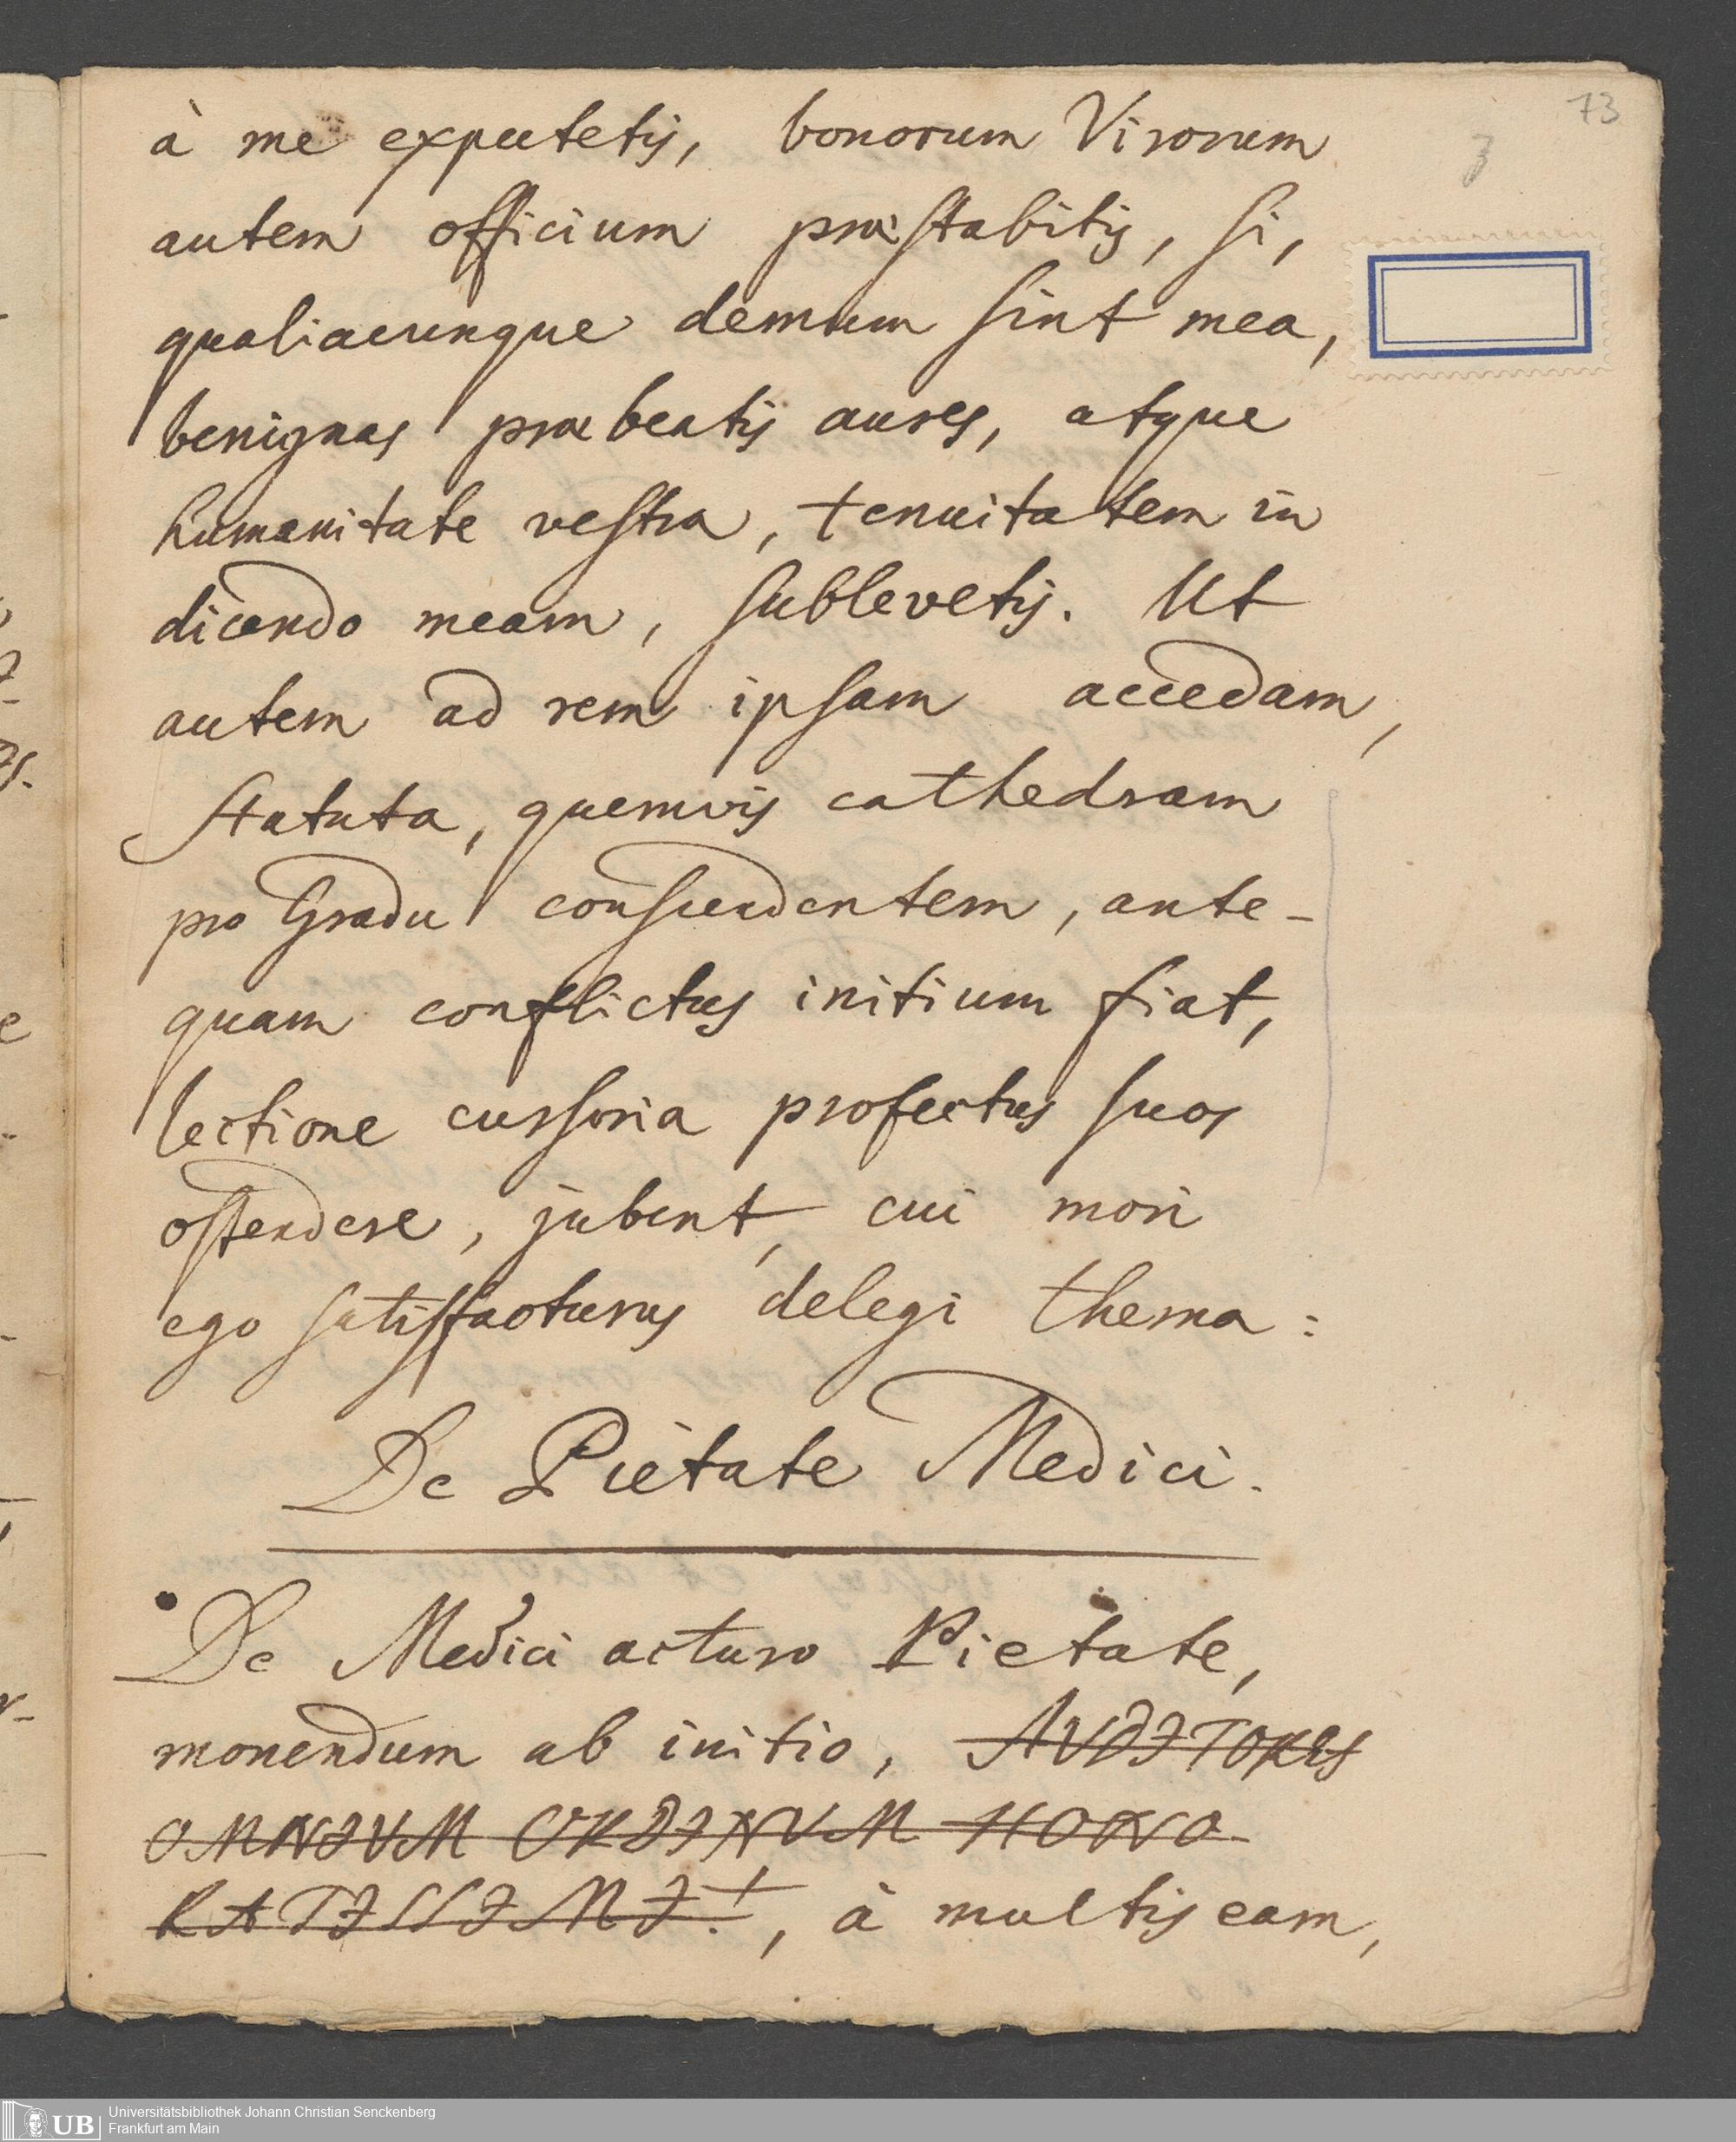 73
3
à me expectetis, bonorum Virorum
autem officium præstabitis, si,
qualiacunque demum sint mea,
benignas præbeatis aures, atque
humanitate vestra, tenuitatem in
dicendo meam, sublevetis. Ut
autem ad rem ipsam accedam,
statuta, quemvis cathedram
pro Gradu conscendentem, ante-
quam conflictus initium fiat,
lectione cursoria profectus suos
ostendere, jubent, cui mori
ego satisfacturus delegi thema:
De Pietate Medici.
De Medici acturo Pietate,
monendum ab initio, AVDITORES
OMNIVM ORDINVM HONO-
RATISSIMI!, à multis eam,
UB Universitätsbibliothek Johann Christian Senckenberg
Frankfurt am Main